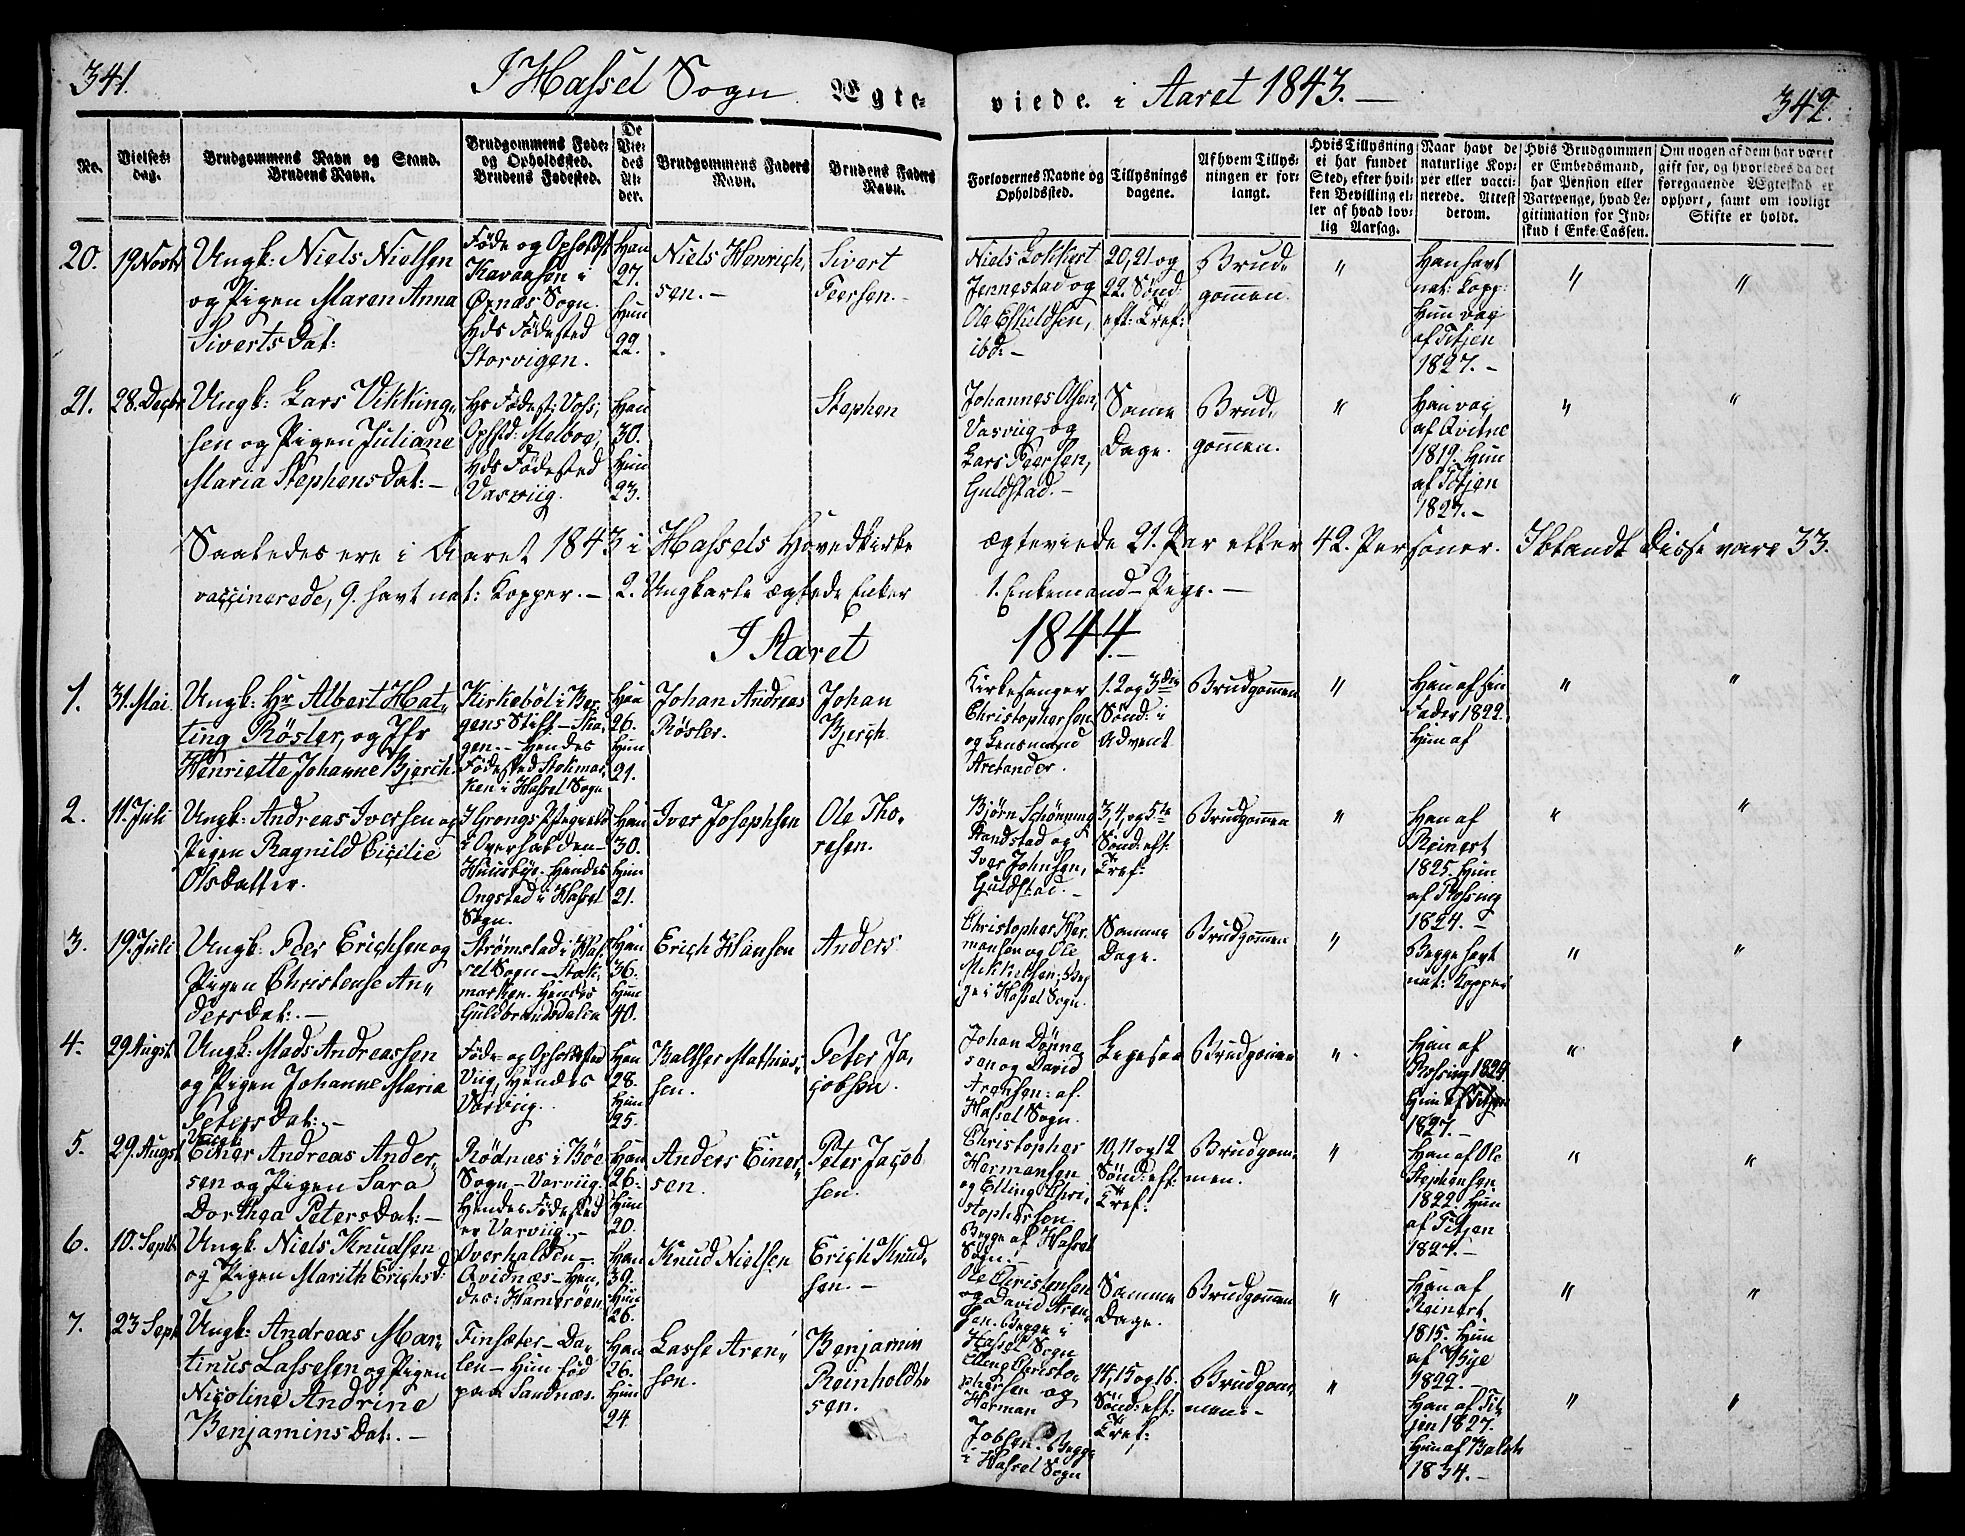 341.
I Hassel Sogn Ægte-
viede i Aaret 1843.—
342.
No.
Vielses-
dag.
Brudgommens Navn og Stand.
Brudens Navn.
Brudgommens Føde-
og Opholdssted.
Brudens Fødested.
De
Vie-
des
Al-
der.
Brudgommens Faders
Navn.
Brudens Faders
Navn.
Forlovernes Navne og
Opholdssted.
Tillysnings
dagene.
Af hvem Tillys-
ningen er for-
langt.
Hvis Tillysning
ei har fundet
Sted, efter hvil-
ken Bevilling el-
ler af hvad lov-
lig Aarsag.
Naar havt de
naturlige Kop-
per eller vacci-
nerede. Attest
derom.
Hvis Brudgommen
er Embedsmand,
har Pension eller
Vartpenge, hvad Le-
gitimation for Ind-
skud i Enke-Cassen.
Om nogen af dem har været
gift før, og hvorledes da det
foregaaende Ægteskab er
ophørt, samt om lovligt
Skifte er holdt.
20.
19 Novbr
Ungk: Niels Nielsen
og Pigen Maren Anna
Siverts Dat:
Føde og Opholdst
i
Øxnæs Sogn.
Hds Fødested
Storvigen.
Han
27.
Hun
22.
Niels Henrich,
sen.-
Sivert
Peersen.-
Niels Lokkert
Jennestad og
Ole Eskildsen,
ibd.-
20, 21 og
22. Sønd:
eft: Tref:
Brud,
gommen.
"
Han havt
nat: Kopp:
Hun vac
af Titjen
1827.-
"
"
21.
28. Decbr
Ungk: Lars Vikking,
sen og Pigen Juliane
Maria Stephens Dat:-
Hs Fødest: Voss,
Ophstd: Melboe,
Hds Fødested
Vasviig.
Han
30.
Hun
23.
Stephen
Johannes Olsen,
Vasviig og
Lars Peersen,
Guldstad.-
Samme
Dage.
Brud,
gommen.
"
Han vac
af Qvitne
1819. Hun
af Titjen
1827.-
"
"
Saaledes ere i Aaret 1843 i Hassels Hovedkirke ægteviede 21. Par eller 42. Personer. Iblandt disse vare 33.
vaccinerede, 9. havt nat: Kopper.- 2. Ungkarle ægtede Enker 1. Enkemand - Pige.-
I Aaret 1844.-
1.
31. Mai
Ungk: Hr Albert Hat,,
ting Røsler, og Jfr
Henriette Johanne Bjerch.
Kirkebøl i Ber,
gens Stift - Ska,
gen. - Hendes
Fødested Stokmar,
ken i Hassel Sogn
Han
26.
Hun
21.
Johan Andreas
Røsler.
Johan
Bjerch
Kirkesanger
Christophersen
og Lensmand
Arctander.
1. 2 og 3die
Sønd: i
Advent
Brudgommen
"
Han af sin
Fader 1822.
Hun af
"
"
2.
11. Juli
Ungk: Andreas Iversen og
Pigen Ragnild Cicilie
Olsdatter.
I Grongs Pgjeld
i Overhalden-
Huusbye. Hendes
Ongstad i Hassel
Sogn.
Han
30.
Hun
21.
Iver Josephsen
Ole Tho,
resen.
Bjørn Schønning
Sandstad og
Iver Johnsen,
Guldstad.-
3, 4, og 5te
Sønd: eft:
Tref:
Brudgommen
"
Han af
Reinert
1825. Hun
af Rossing
1824.-
"
"
3.
19. Juli
Ungk: Peer Erichsen og
Pigen Christense An,,
ders Dat:.-
Strømstad i Has,
sel Sogn - Stok,
marken. Hendes
Guldbrandsdalen
Han
36.
Hun
40.
Erich Hansen
Anders
Christopher Her,
mansen og Ole
Mikkelsen; Beg,
ge i Hassel Sogn.
Samme
Dage.
Brudgommen
"
Begge havt
nat: Kopper
"
"
4.
29 Augst
Ungk: Mads Andreassen
og Pigen Johanne Maria
Peters Dat:.-
Føde- og Opholdssted
Viig, Hendes
Varviig.
Han
28.
Hun
25.
Balsser Mathias,
sen.
Peter Ja,
cobsen.
Johan Dønne,
sen og David
Arentsen: af
Hassel Sogn.
Ligesaa
Brudgommen
"
Han af
Rossing 1824
Hun af Titjen
1827.-
"
"
5.
29. Augst
Ungk:
Einer Andreas Ander,,
sen og Pigen Sara
Dorthea Peters Dat:-
Rødnæs i Bøe
Sogn - Varviig.
Hendes Fødested
er Varviig.-
Han
26.
Hun
20.
Anders Einer,
sen.
Peter Jacob
sen.
Christopher
Hermansen
og Elling Chri,
stophersen.
Begge af Hassel
Sogn.
10, 11 og 12
Sønd: eft:
Tref:
Brudgom,
men.
"
Han af Ole
Stephensen
1822. Hun
af Titjen
1827.-
"
"
6.
10. Septb.
Ungk. Niels Knudsen
og Pigen Marith Erichsd:
Overhalden.-
Qvidnæs - Hen,
des: Hamerøen
Han
39.
Hun
26.
Knud Nielsen
Erich Knud,
sen.-
Ole Christensen
og David Aren,
sen. Begge i
Hassel Sogn
Samme
Dage.
Brudgommen
"
Han af
Reinert
1815. Hun
af Bye
1822.-
"
"
7.
23 Sept
Ungk: Andreas Mar,
tinus Lassesen og Pigen
Nicoline Andrine
Benjamins Dat:.-
Finsæter - Da,
len - Hun fød
paa Sandnæs.
Han
26.
Hun
24.
Lasse Aren,,
sen.
Benjamin
Reinholdt,
sen.
Elling Christo,
phersen og
Herman
Jobsen. Begge
i Hassel Sogn
14, 15 og 16.
Sønd: eft:
Tref:
Brudgom,
men.-
"
Han af Tit,
jen 1827.
Hun af Balch
1834.-
"
"